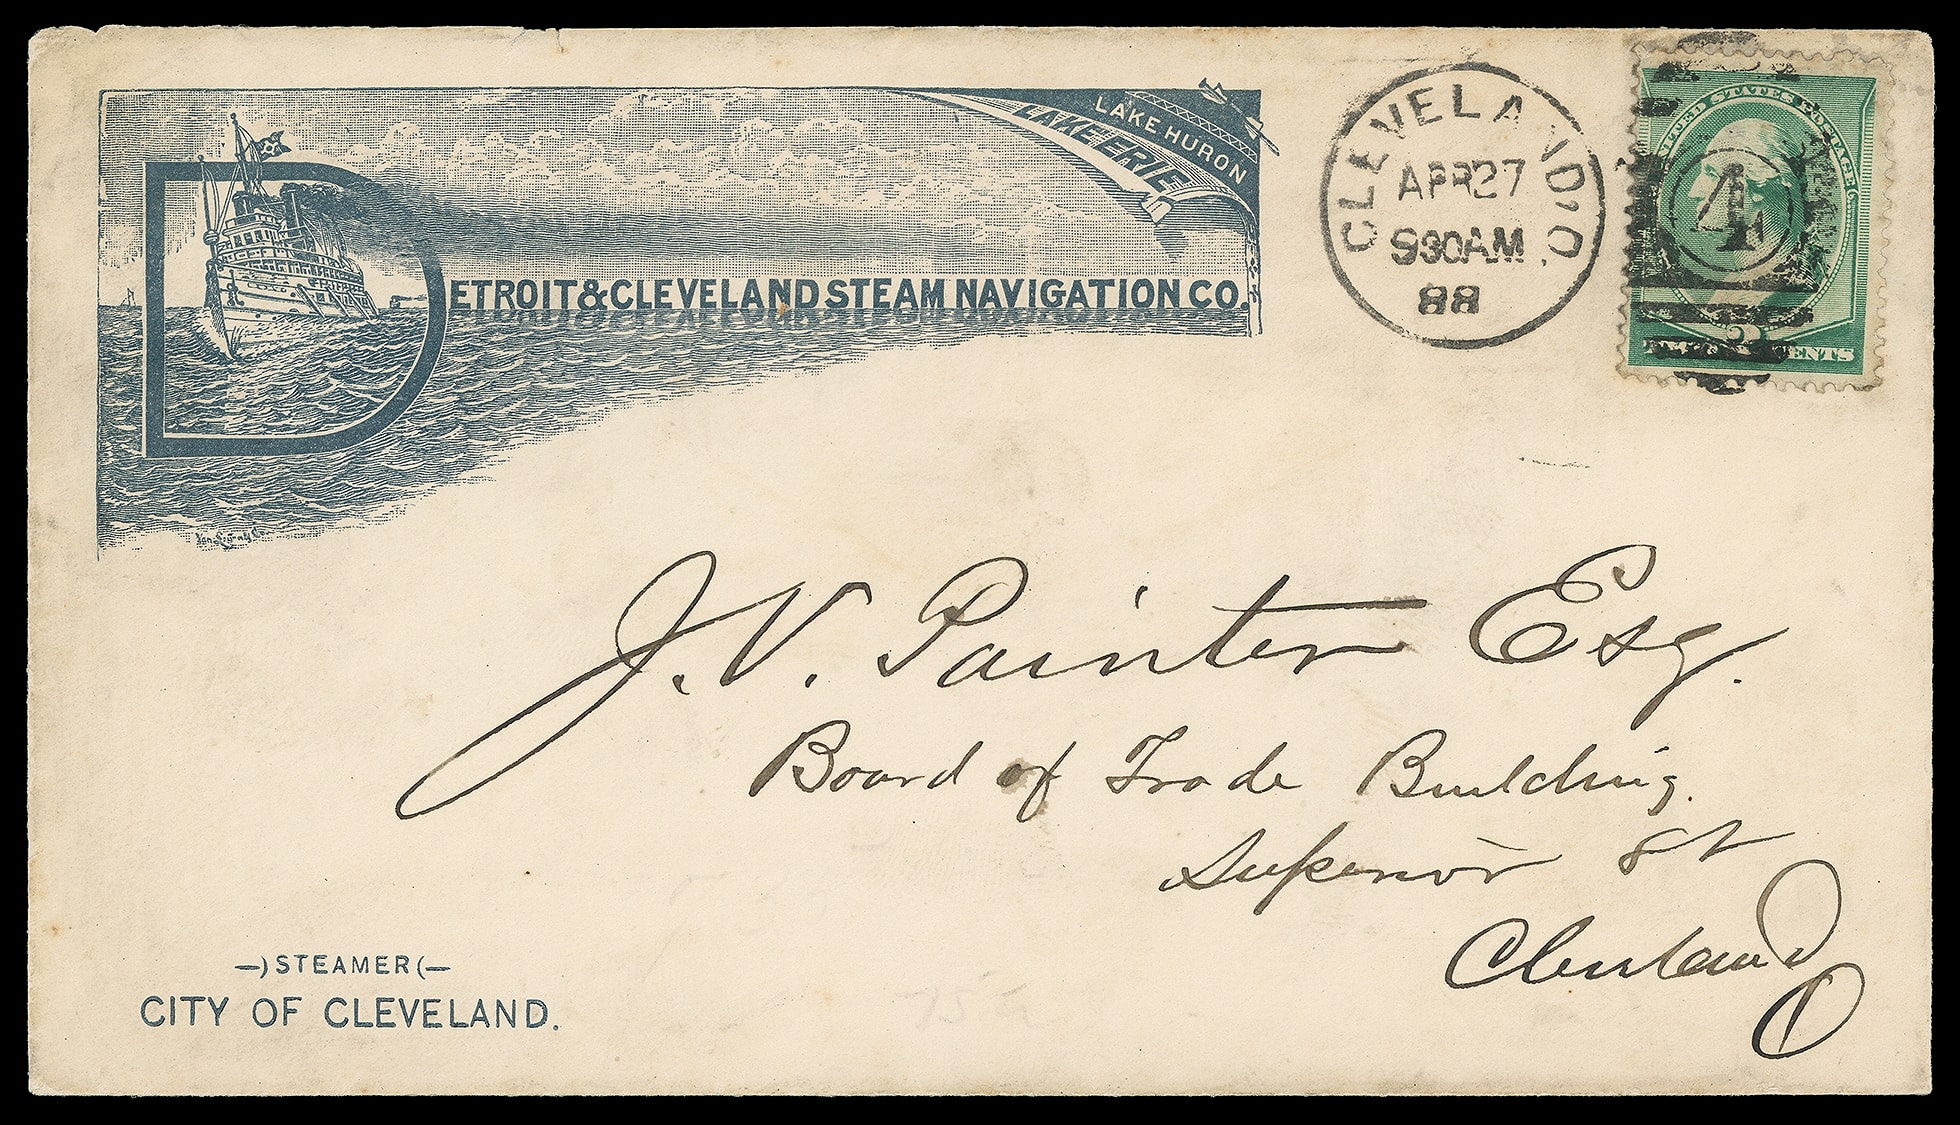 LAKE HURON
LAKE ERIE
DETROIT & CLEVELAND STEAM NAVIGATION CO.
CLEVELAND, O.
APR 27
930AM
88
UNITED STATES POSTAGE
4
2
TWO CENTS
J. V. Painter Esq.
Board of Trade Building.
Superior St
Cleveland
O
—) STEAMER (—
CITY OF CLEVELAND.